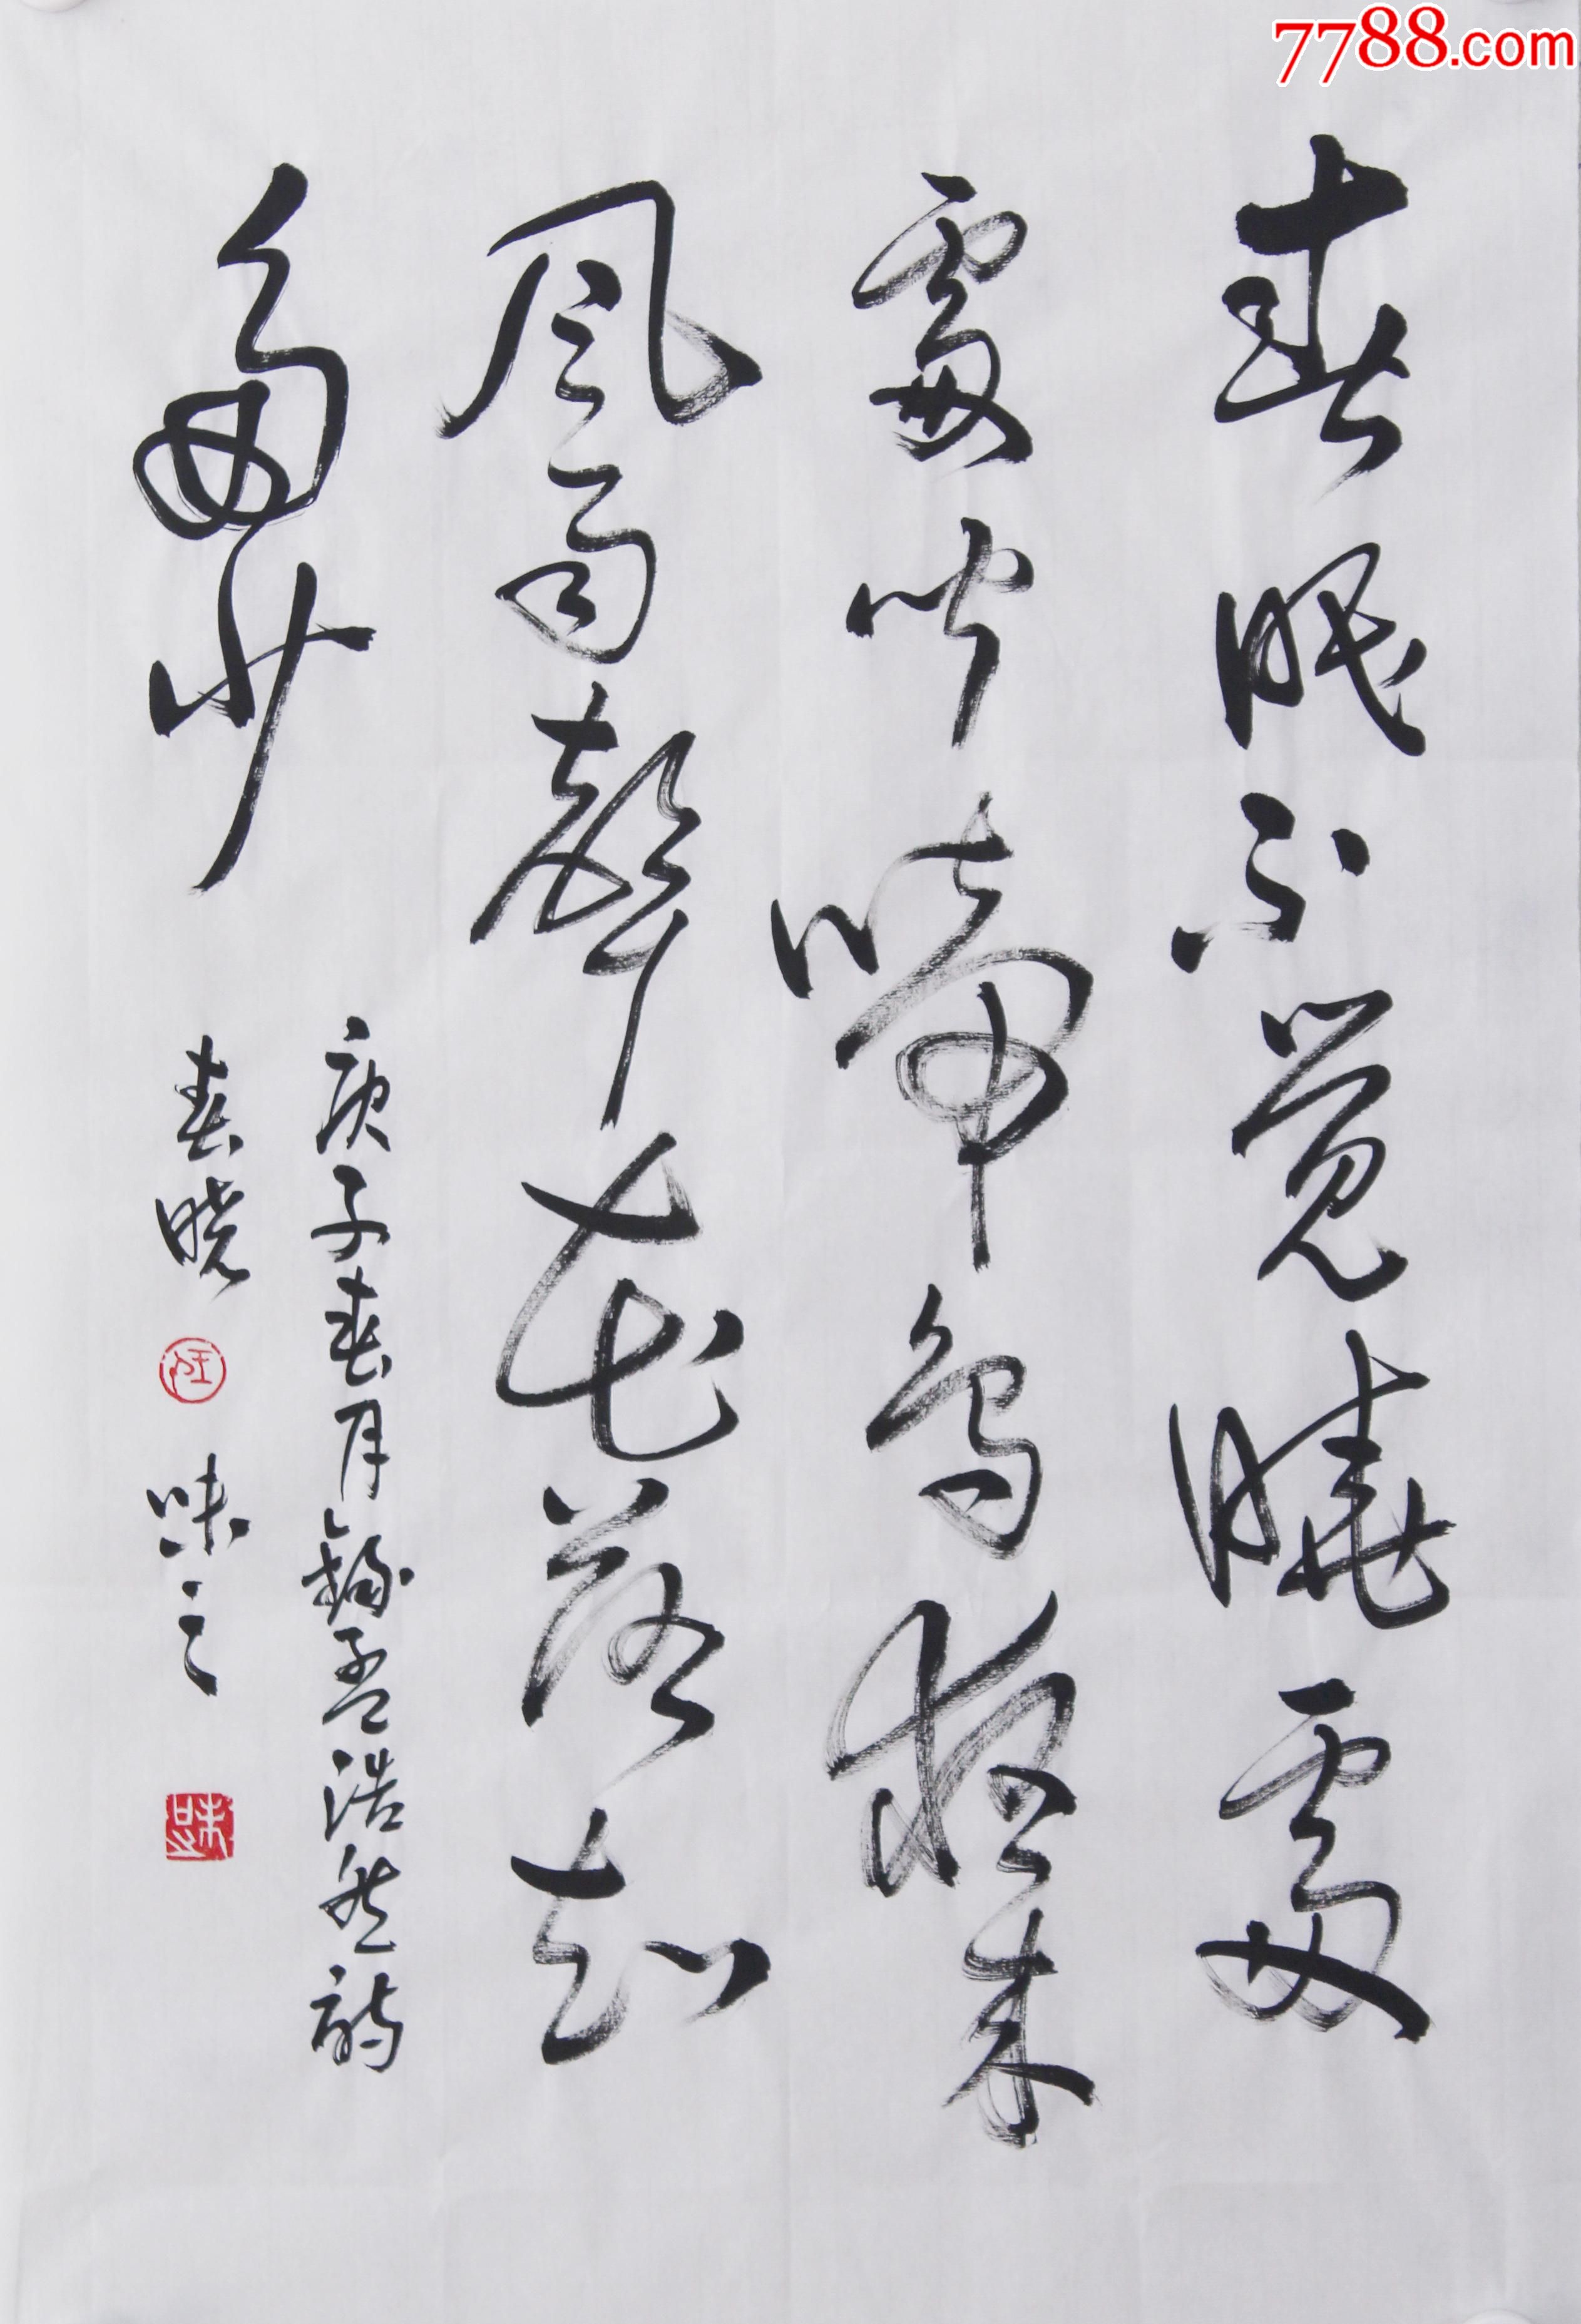 7788.com
春眠不觉晓处
处闻啼鸟夜来
风雨声花落知
多少
庚子春月录孟浩然诗
春晓 味之